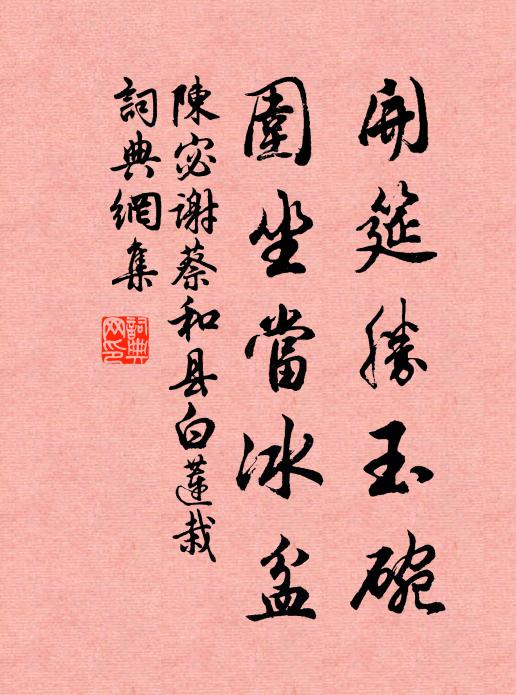 開筵勝玉碗
圍坐當冰盆
陳宓谢蔡和县白蓮栽
詞典網集
詞典网印